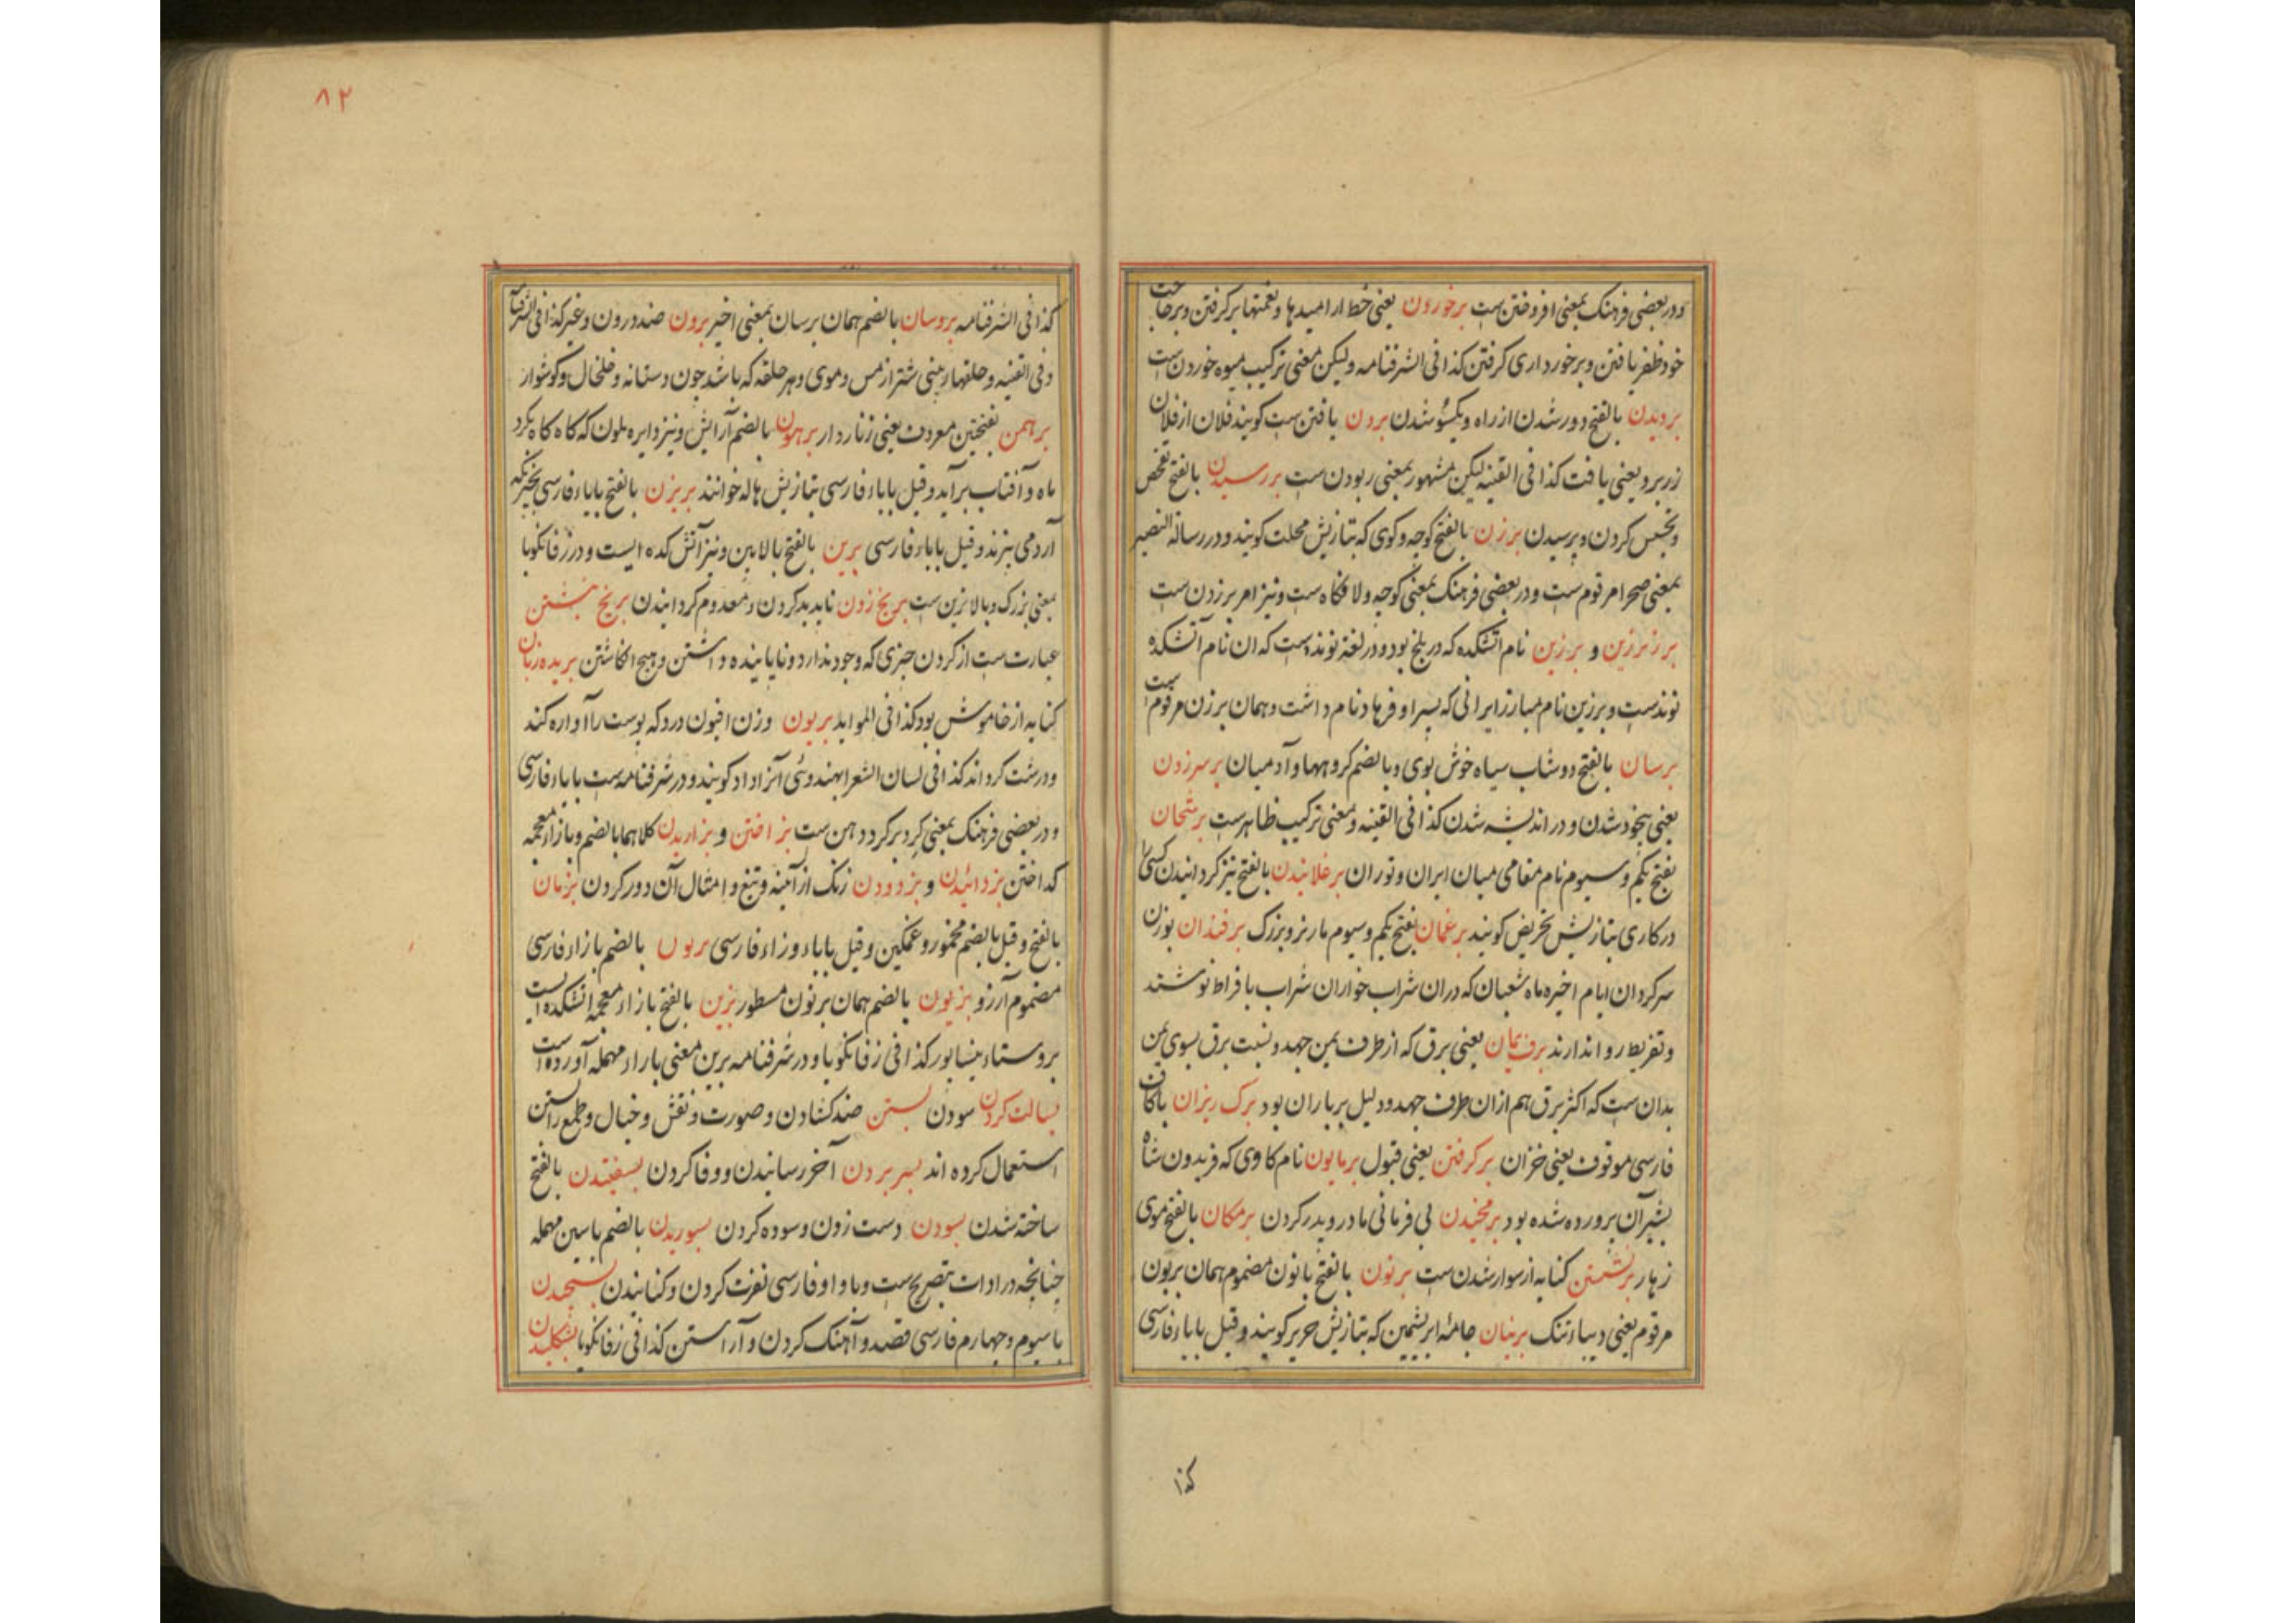 ودر بعضی فرهنک بمعنی افروختن ست برخوردن یعنی خط ار امیدها ونعمتها برکرفتن وبرحاجت
خود ظفر یافتن وبرخورداری کرفتن کذا فی الشرفنامه ولیکن معنی ترکیب میوه خوردن ست
بردیدن بالفتح دور شدن از راه ویکسو شدن بردن یافتن ست کویند فلان از فلان
زر برد یعنی یافت کذا فی القنیه لیکن مشهور بمعنی ربودن ست بررسیدن بالفتح تفحص
وتجسس کردن وپرسیدن برزن بالفتح کوچه وکوی که بتازیش محلت کویند ودر رسالة النصیر
بمعنی صحرا مرقوم ست ودر بعضی فرهنک بمعنی کوچه ولا فکاه ست ونیز امر بر زدن ست
برزبرزین و برزین نام اتشکده که در بلخ بود ودر لغة نوندست که ان نام آتشکده
نوندست وبرزین نام مبارز ایرانی که پسر او فرهاد نام داشت وهمان برزن مرقوم ست
برسان بالفتح دوشاب سیاه خوش بوی وبالضم کروهها وآدمیان برسرزدن
یعنی بیخود شدن ودر اندیشه شدن کذا فی القنیه ومعنی ترکیب ظاهرست برشخان
بفتح یکم وسیوم نام مقامی میان ایران وتوران برغلانیدن بالفتح تیز کردانیدن کسی را
درکاری بتازیش تحریض کویند برغمان بفتح یکم وسیوم مار نر وبزرک برفندان بوزن
سرکردان ایام اخیره ماه شعبان که دران شراب خواران شراب بافراط نوشند
وتفریط روا ندارند برق یمان یعنی برق که از طرف یمن جهد ونسبت برق بسوی یمن
بدان ست که اکثر برق هم ازان طرف جهد ودلیل بر باران بود برک ریزان باکاف
فارسی موقوف یعنی خزان برکرفتن یعنی قبول برمایون نام کاوی که فریدون شاه
بشیر آن پرورده شده بود برمخیدن بی فرمانی مادر وپدر کردن برمکان بالفتح موی
زهار برنشستن کنایه از سوار شدن ست برنون بالفتح بانون مضموم همان بریون
مرقوم یعنی دیباء تنک برنیان جامهٔ ابریشمین که بتازیش حریر کویند وقیل باباء فارسی
کذا
٨٢
کذا فی الشرفنامه بروسان بالضم همان برسان بمعنی اخیر برون ضد درون وغیر کذا فی الشرفنامه
وفی القنیه وحلقها ربینی شتر از مس وموی وهر حلقه که باشد چون دستانه وخلخال وکوشوار
برهمن بفتحتین معروف یعنی زناردار برهون بالضم آرایش ونیز دایره ملون که کاه کاه بکرد
ماه وآفتاب برآید وقیل باباء فارسی بتازیش هاله خوانند بریزن بالفتح بایاء فارسی بخیزنکه
آرد می بیزند وقیل باباء فارسی برین بالفتح بالابین ونیز آتش کده ایست ودر زفانکویا
بمعنی بزرک وبالاترین ست بریخ زدن ناپدید کردن ومعدوم کردانیدن بریخ نبشتن
عبارت ست از کردن چیزی که وجود ندارد وناپاینده داشتن وهیچ انکاشتن بریده زبان
کنایه از خاموش بود کذا فی الموابد بریون وزن افیون درد که پوست را آواره کند
ودرشت کرداند کذا فی لسان الشعرا بهندوی آنرا داد کویند ودر شرفنامه ست باباء فارسی
ودر بعضی فرهنک بمعنی کرد برکرد دهن ست بزاختن و بزاریدن کلاهما بالضم وبازاء معجمه
کداختن بزدائیدن و بزدودن زنک از آیینه وتیغ وامثال آن دور کردن بزمان
بالفتح وقیل بالضم مخمور وغمکین وقیل باباء وزاء فارسی بزون بالضم بازاء فارسی
مضموم آرزو بزیون بالضم همان برنون مسطور بزین بالفتح بازاء معجمه اتشکده است
بروستاء نیشابور کذا فی زفانکویا ودر شرفنامه برین معنی باراء مهمله آورده است
بسالت کردن سودن بستن ضد کشادن وصورت ونقش وخیال وطمع راستن
استعمال کرده اند بسر بردن آخر رسانیدن ووفا کردن بسغیتدن بالفتح
ساخته شدن بسودن دست زدن وسوده کردن بسوریدن بالضم باسین مهمله
چنانچه در ادات تصریح ست وباواو فارسی نفرت کردن وکنانیدن بسیجیدن
باسیوم وچهارم فارسی قصد وآهنک کردن وآراستن کذا فی زفانکویا بشکلیدن